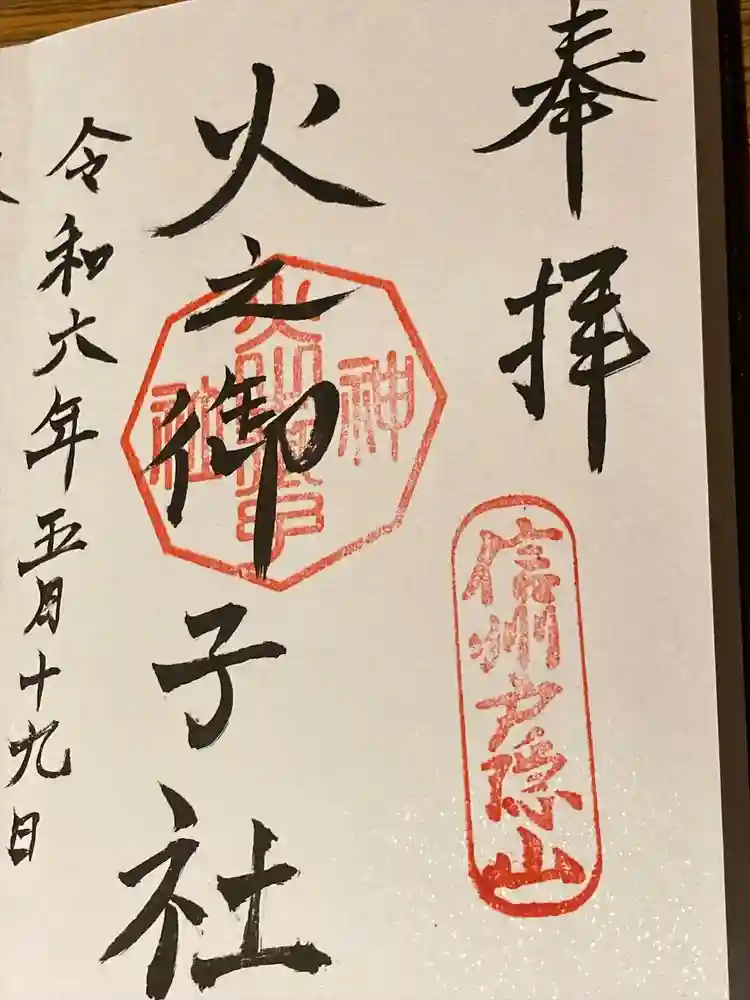 奉拝
信州戸隠山
火之御子社
神
社
令和六年五月十九日